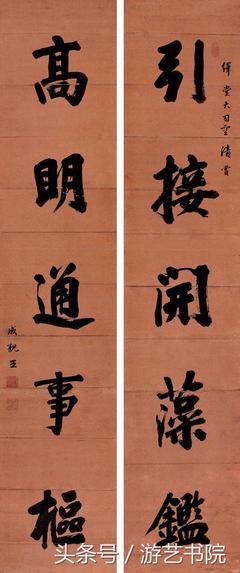 繹堂大司空清賞
引接開藻鑑
高明通事樞
成親王
头条号／游艺书院